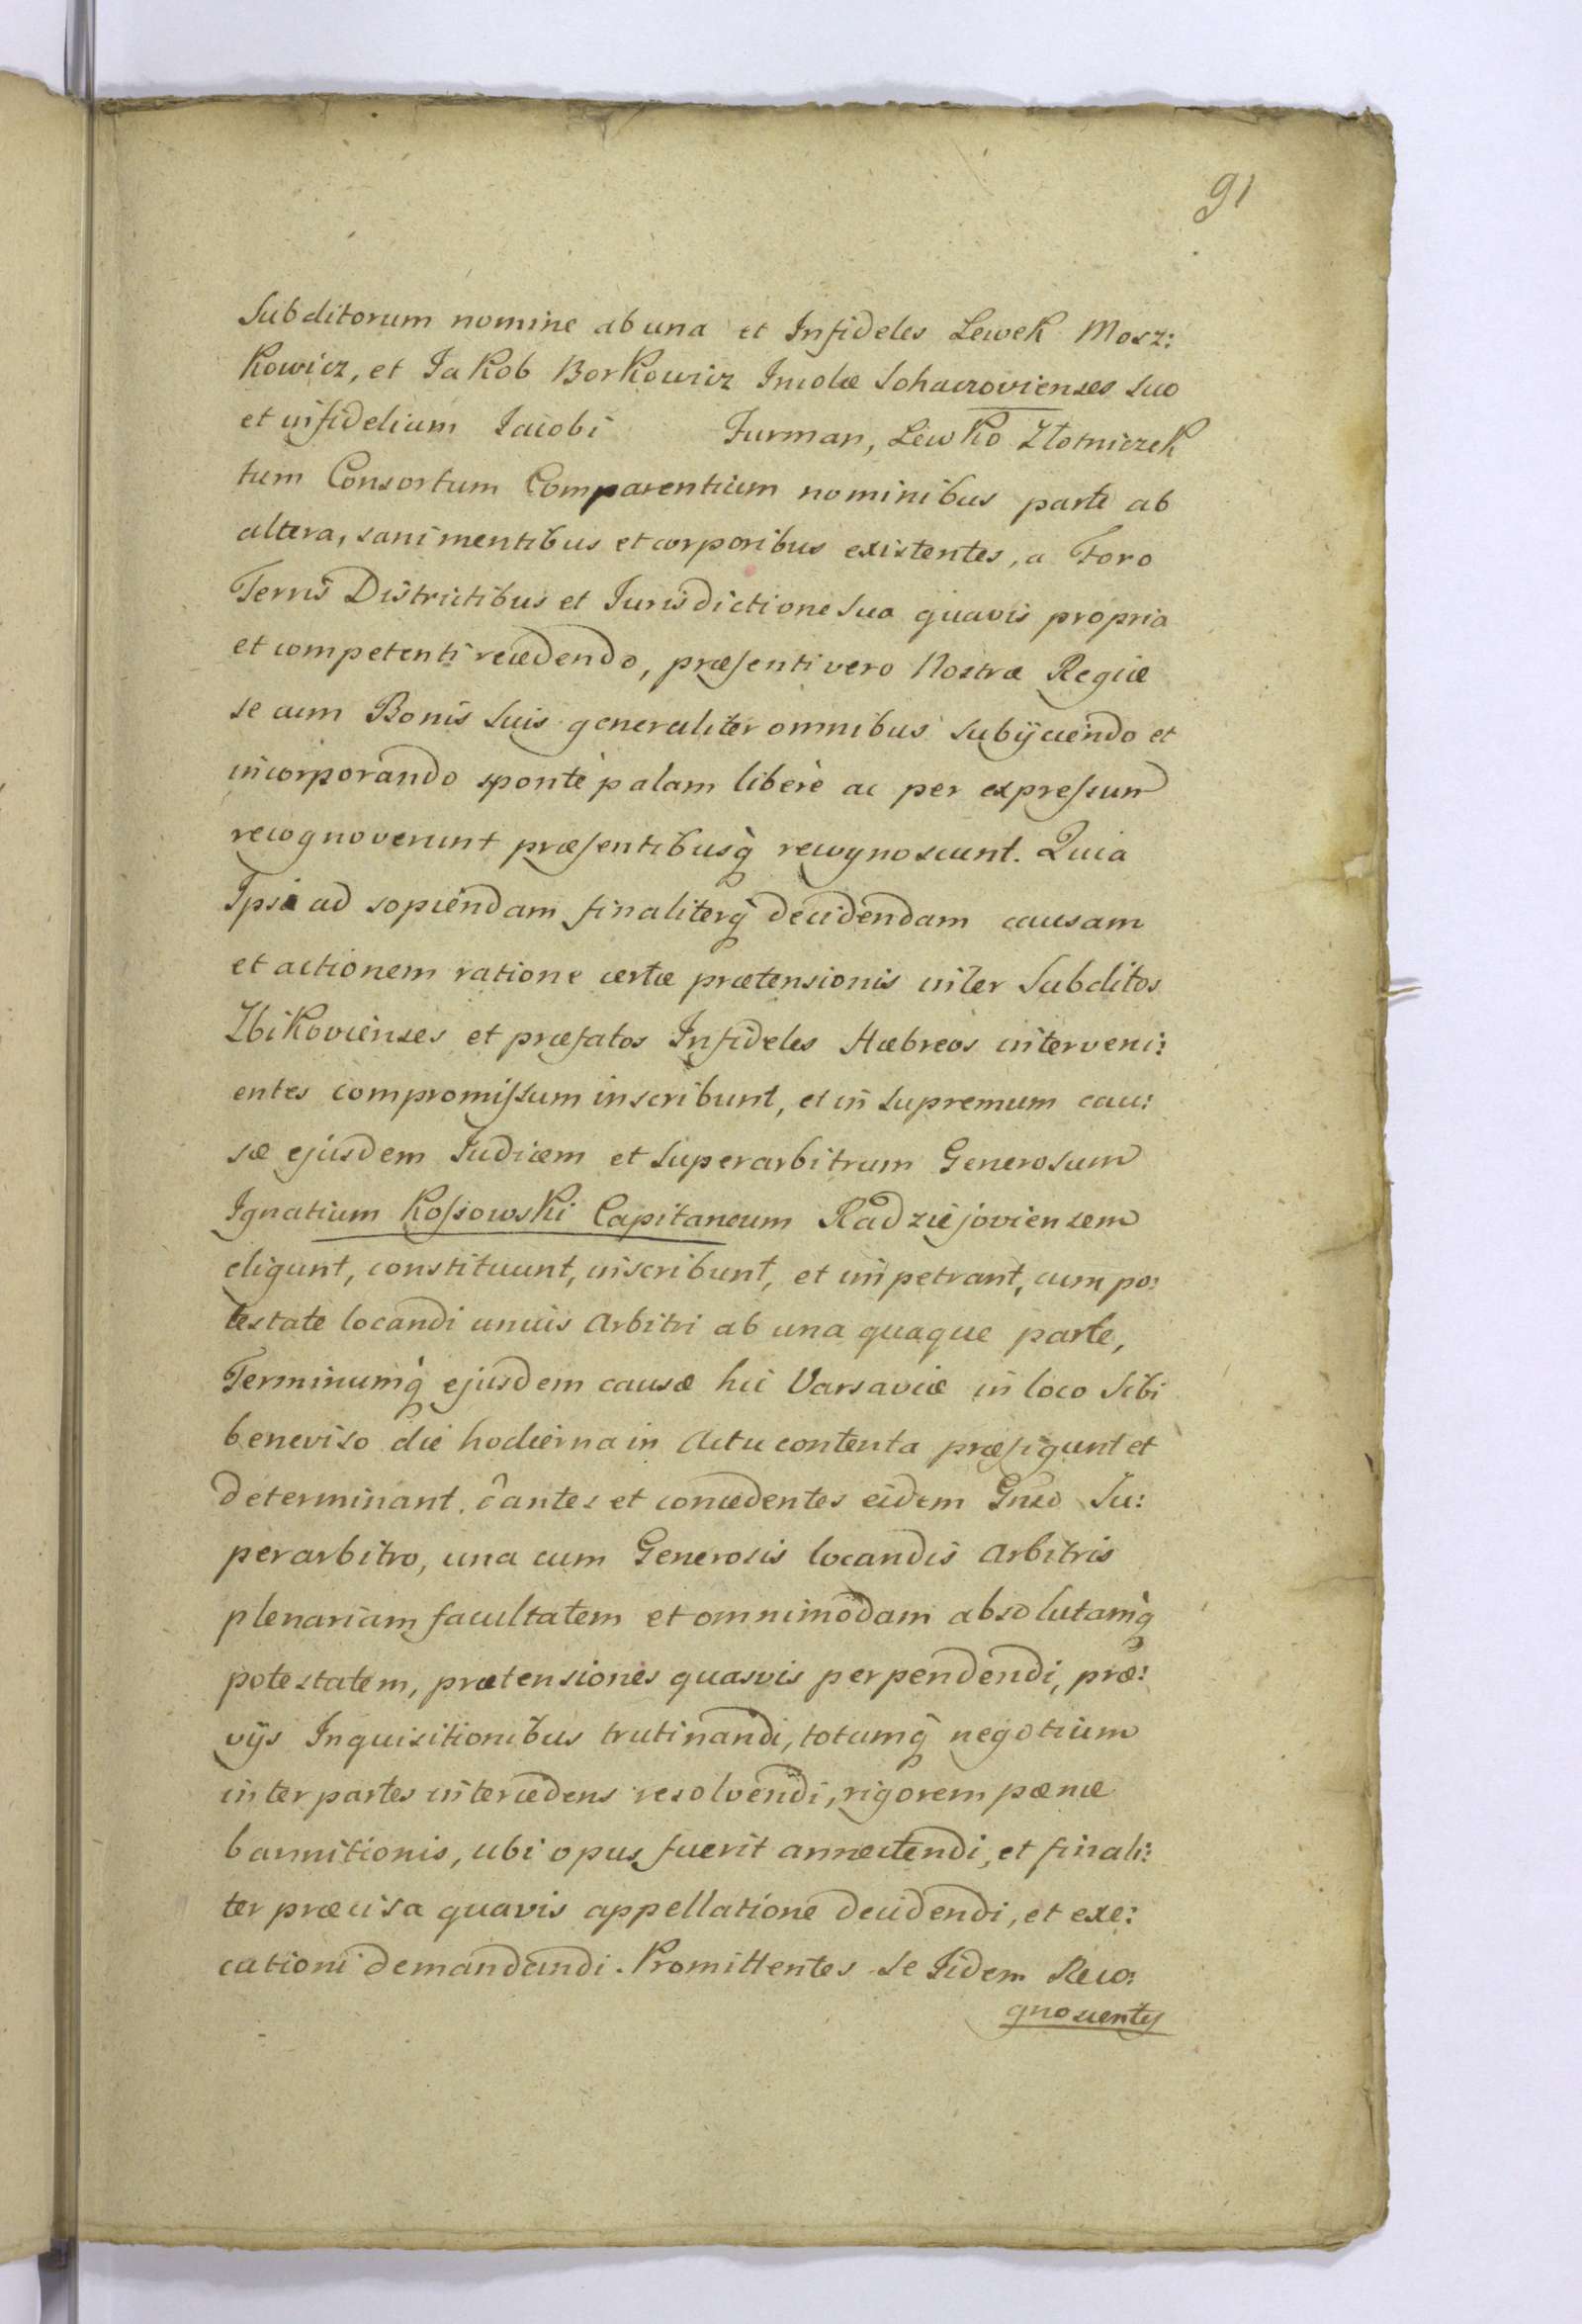 91
Subditorum nomine ab una et Infideles Lewek Mosz:
kowicz, et Jakob Borkowicz Incolæ Sohaczovienses suo
et infidelium Jacobi Furman, Lewko Złotniczek
tum Consortum Comparentium nominibus parte ab
altera, sani mentibus et corporibus existentes, a Foro
Terris Districtibus et Jurisdictione sua quavis propria
et competenti recedendo, præsenti vero Nostræ Regiæ
se cum Bonis suis generaliter omnibus subijciendo et
incorporando sponte palam liberè ac per expressum
recognoverunt præsentibusq̀ recognoscunt. Quia
Ipsi ad sopiendam finaliterq̀ decidendam causam
et actionem ratione certæ prætensionis inter Subditos
Zbikovienses et præfatos Infideles Hæbreos interveni:
entes compromissum inscribunt, et in supremum cau:
sæ ejusdem Judicem et Superarbitrum Generosum
Ignatium Kossowski Capitaneum Radziejoviensem
eligunt, constituunt, inscribunt, et impetrant, cum po:
testate locandi unius Arbitri ab una quaque parte,
Terminumq̀ ejusdem causæ hic Varsaviæ in loco sibi
beneviso die hodierna in Actu contenta præfigunt et
determinant. dantes et concedentes eidem Gnso Su:
perarbitro, una cum Generosis locandis Arbitris
plenariam facultatem et omnimodam absolutamq̀
potestatem, prætensiones quasvis perpendendi, præ:
vijs Inquisitionibus trutinandi, totumq̀ negotium
inter partes intercedens resolvendi, rigorem pænæ
bannitionis, ubi opus fuerit annectendi, et finali:
ter præcisa quavis appellatione decidendi, et exe:
cutioni demandandi. Promittentes se Iidem Reco:
gnoscentes